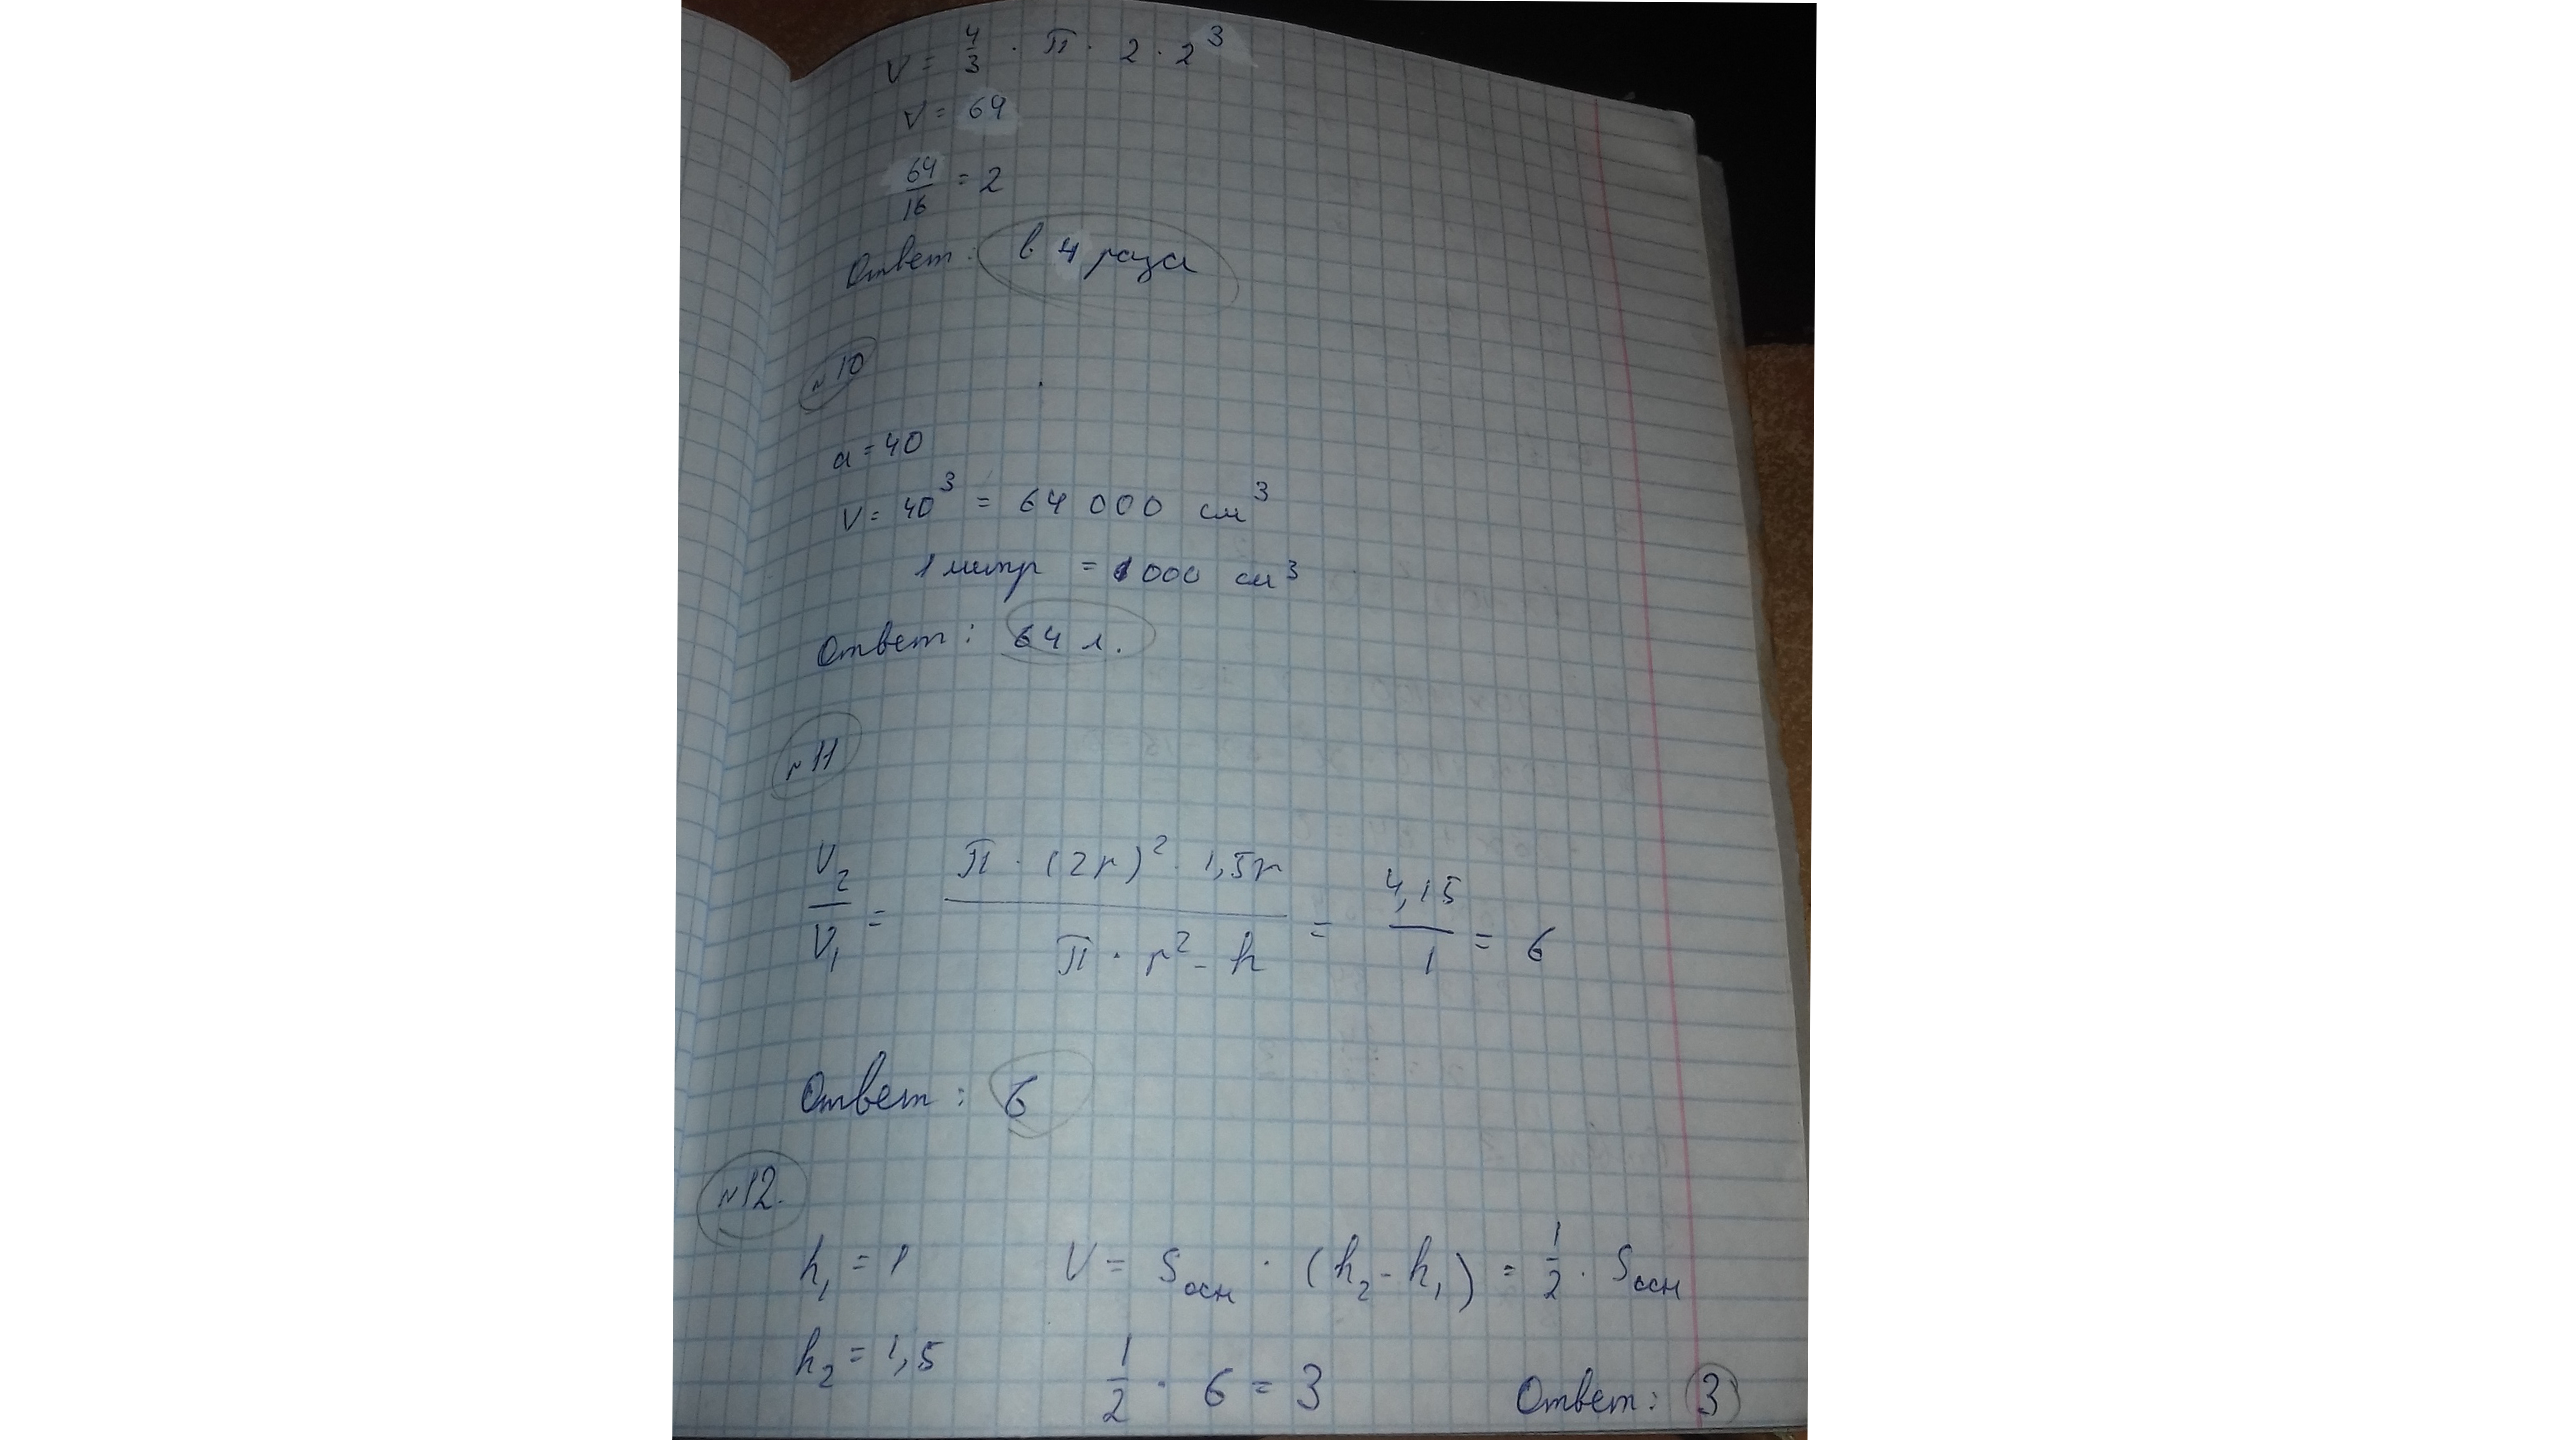 V = 4/3 · П · 2 · 2³
V = 64
64/16 = 2
Ответ: в 4 раза
№10
a = 40
V = 40³ = 64 000 см³
1 литр = 1000 см³
Ответ: 64 л.
№11
V₂/V₁ = П · (2r)² · 1,5r / П · r² - h = 4,15/1 = 6
Ответ: 6
№12.
h₁ = 1 V = Sосн · (h₂ - h₁) = 1/2 · Sосн
h₂ = 1,5 1/2 · 6 = 3 Ответ: 3